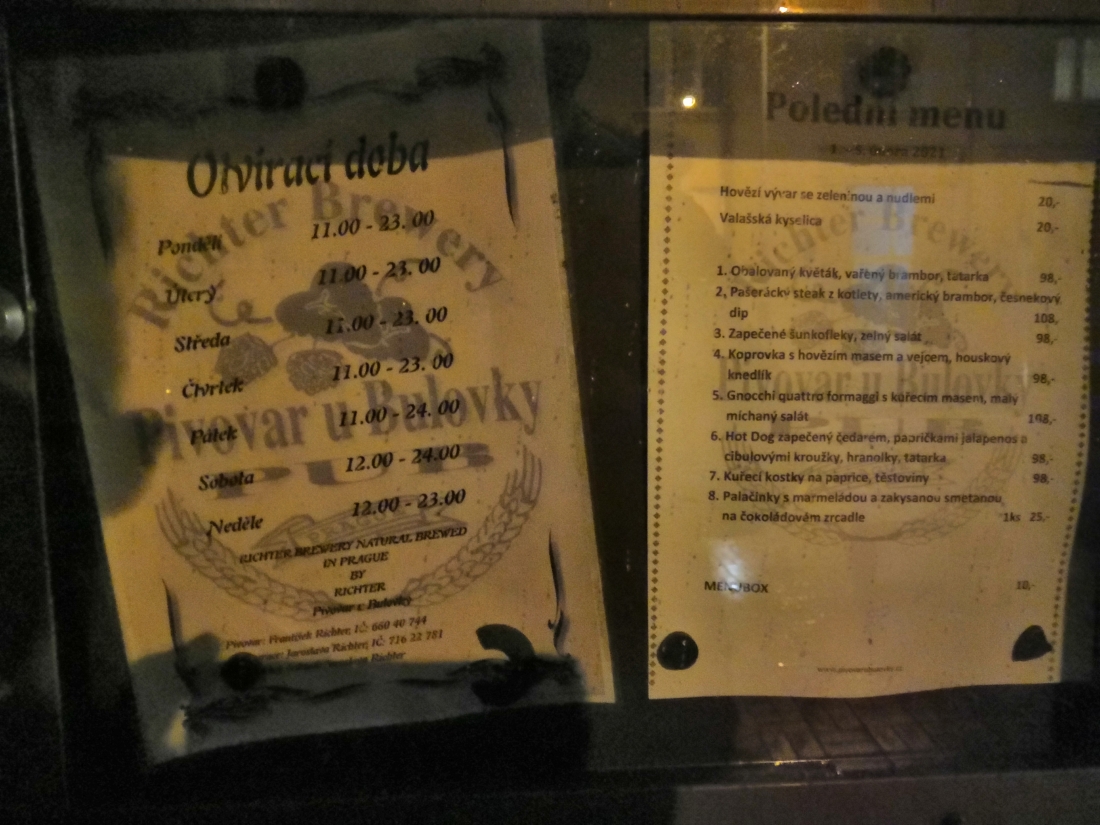 Otvírací doba
Richter Brewery
Pondělí 11.00 - 23.00
Úterý 11.00 - 23.00
Středa 11.00 - 23.00
Čtvrtek 11.00 - 23.00
Pivovar u Bulovky
Pátek 11.00 - 24.00
PUB
Sobota 12.00 - 24.00
Neděle 12.00 - 23.00
RICHTER BREWERY NATURAL BREWED
IN PRAGUE
BY
RICHTER
Pivovar u Bulovky
Pivovar: František Richter, IČ: 660 40 744
Jaroslava Richter, IČ: 716 22 781
Richter
Polední menu
1. - 5. 2021
Hovězí vývar se zeleninou a nudlemi 20,-
Valašská kyselica 20,-
Richter Brewery
1. Obalovaný květák, vařený brambor, tatarka 98,-
2, Pašerácký steak z kotlety, americký brambor, česnekový
dip 108,
3. Zapečené šunkofleky, zelný salát 98,-
4. Koprovka s hovězím masem a vejcem, houskový
knedlík 98,-
Pivovar u Bulovky
5. Gnocchi quattro formaggi s kuřecím masem, malý
míchaný salát 108,-
6. Hot Dog zapečený čedarem, papričkami jalapenos a
cibulovými kroužky, hranolky, tatarka 98,-
7. Kuřecí kostky na paprice, těstoviny 98,-
8. Palačinky s marmeládou a zakysanou smetanou
na čokoládovém zrcadle 1ks 25,-
MENUBOX 10,-